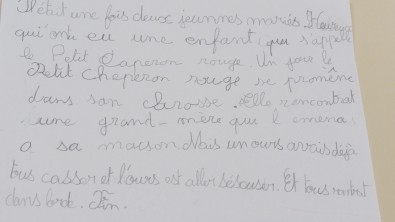 Il était une fois deux jeunnes mariés. Heureux
qui onk eu une enfant qui s'appelle
le Petit Caperon rouge. Un jour le
Petit Cheperon rouge se promène
dans san Carosse. Elle rencontrat
une grand-mère qui l'emena
a sa maeson. Mais un ours avais déjà
tous cassar et l'ours est aller séscuser. Et tous rentrat
dans l'ordr. Fin.